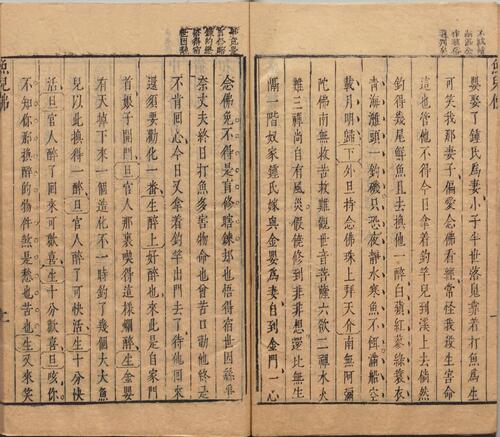 魚兒佛
嬰娶了鍾氏爲妻小子半世落魄靠着打魚爲生
可笑我那妻子偏愛念佛看經常怪我殺生害命
這也管他不得今日拿着釣竿兒到溪上去倘然
釣得幾尾鮮魚且去換他一醉白蘋紅蓼綠蓑衣
青海灘頭一釣磯只恐夜靜水寒魚不餌滿船空
載月明歸下外旦持念佛珠上拜天介南無阿彌
陀佛南無救苦救難觀世音菩薩六欲二禪水火
難三禪尚自有風災假饒修到非非想比無生
隔一階奴家鍾氏嫁與金嬰爲妻自到金門一心
念佛免不得是盲修瞎鍊却也悟得宿世因緣爭
奈丈夫終日打魚多害物命也曾苦口勸他終是
不肯回心今日又拿着釣竿出門去了待他回來
還須要勸化一番生醉上好醉也來此是自家門
首娘子開門旦官人那裏喫得這樣爛醉生金嬰
有天掉下來一個造化不一時釣了幾個大大魚
兒以此換得一醉旦官人醉了可快活生十分快
活旦官人醉了回來可歡喜生十分歡喜旦咳你
不知你那換醉的物件煞是愁也苦也生又來笑
魚兒佛